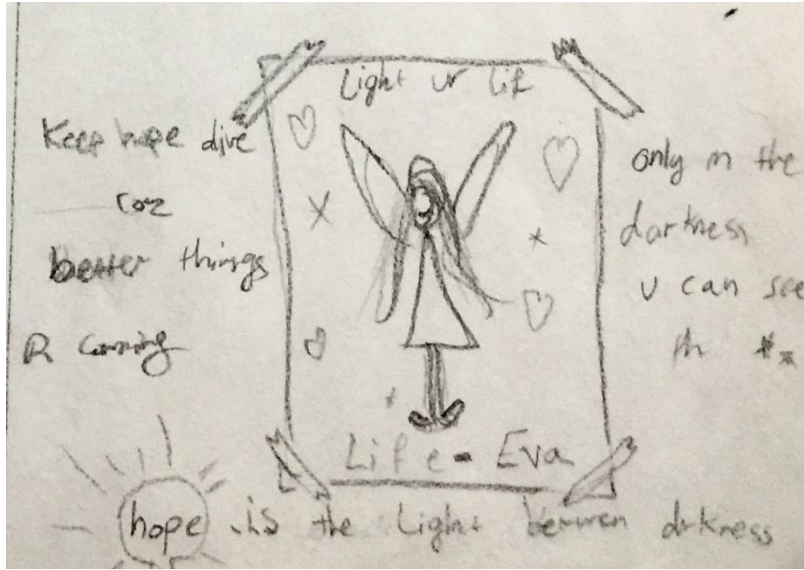 Light ur lif
Keep hope alive
coz
better things
R comming
only in the
darkness
u can see
th **
Life = Eva
hope is the Light between darkness